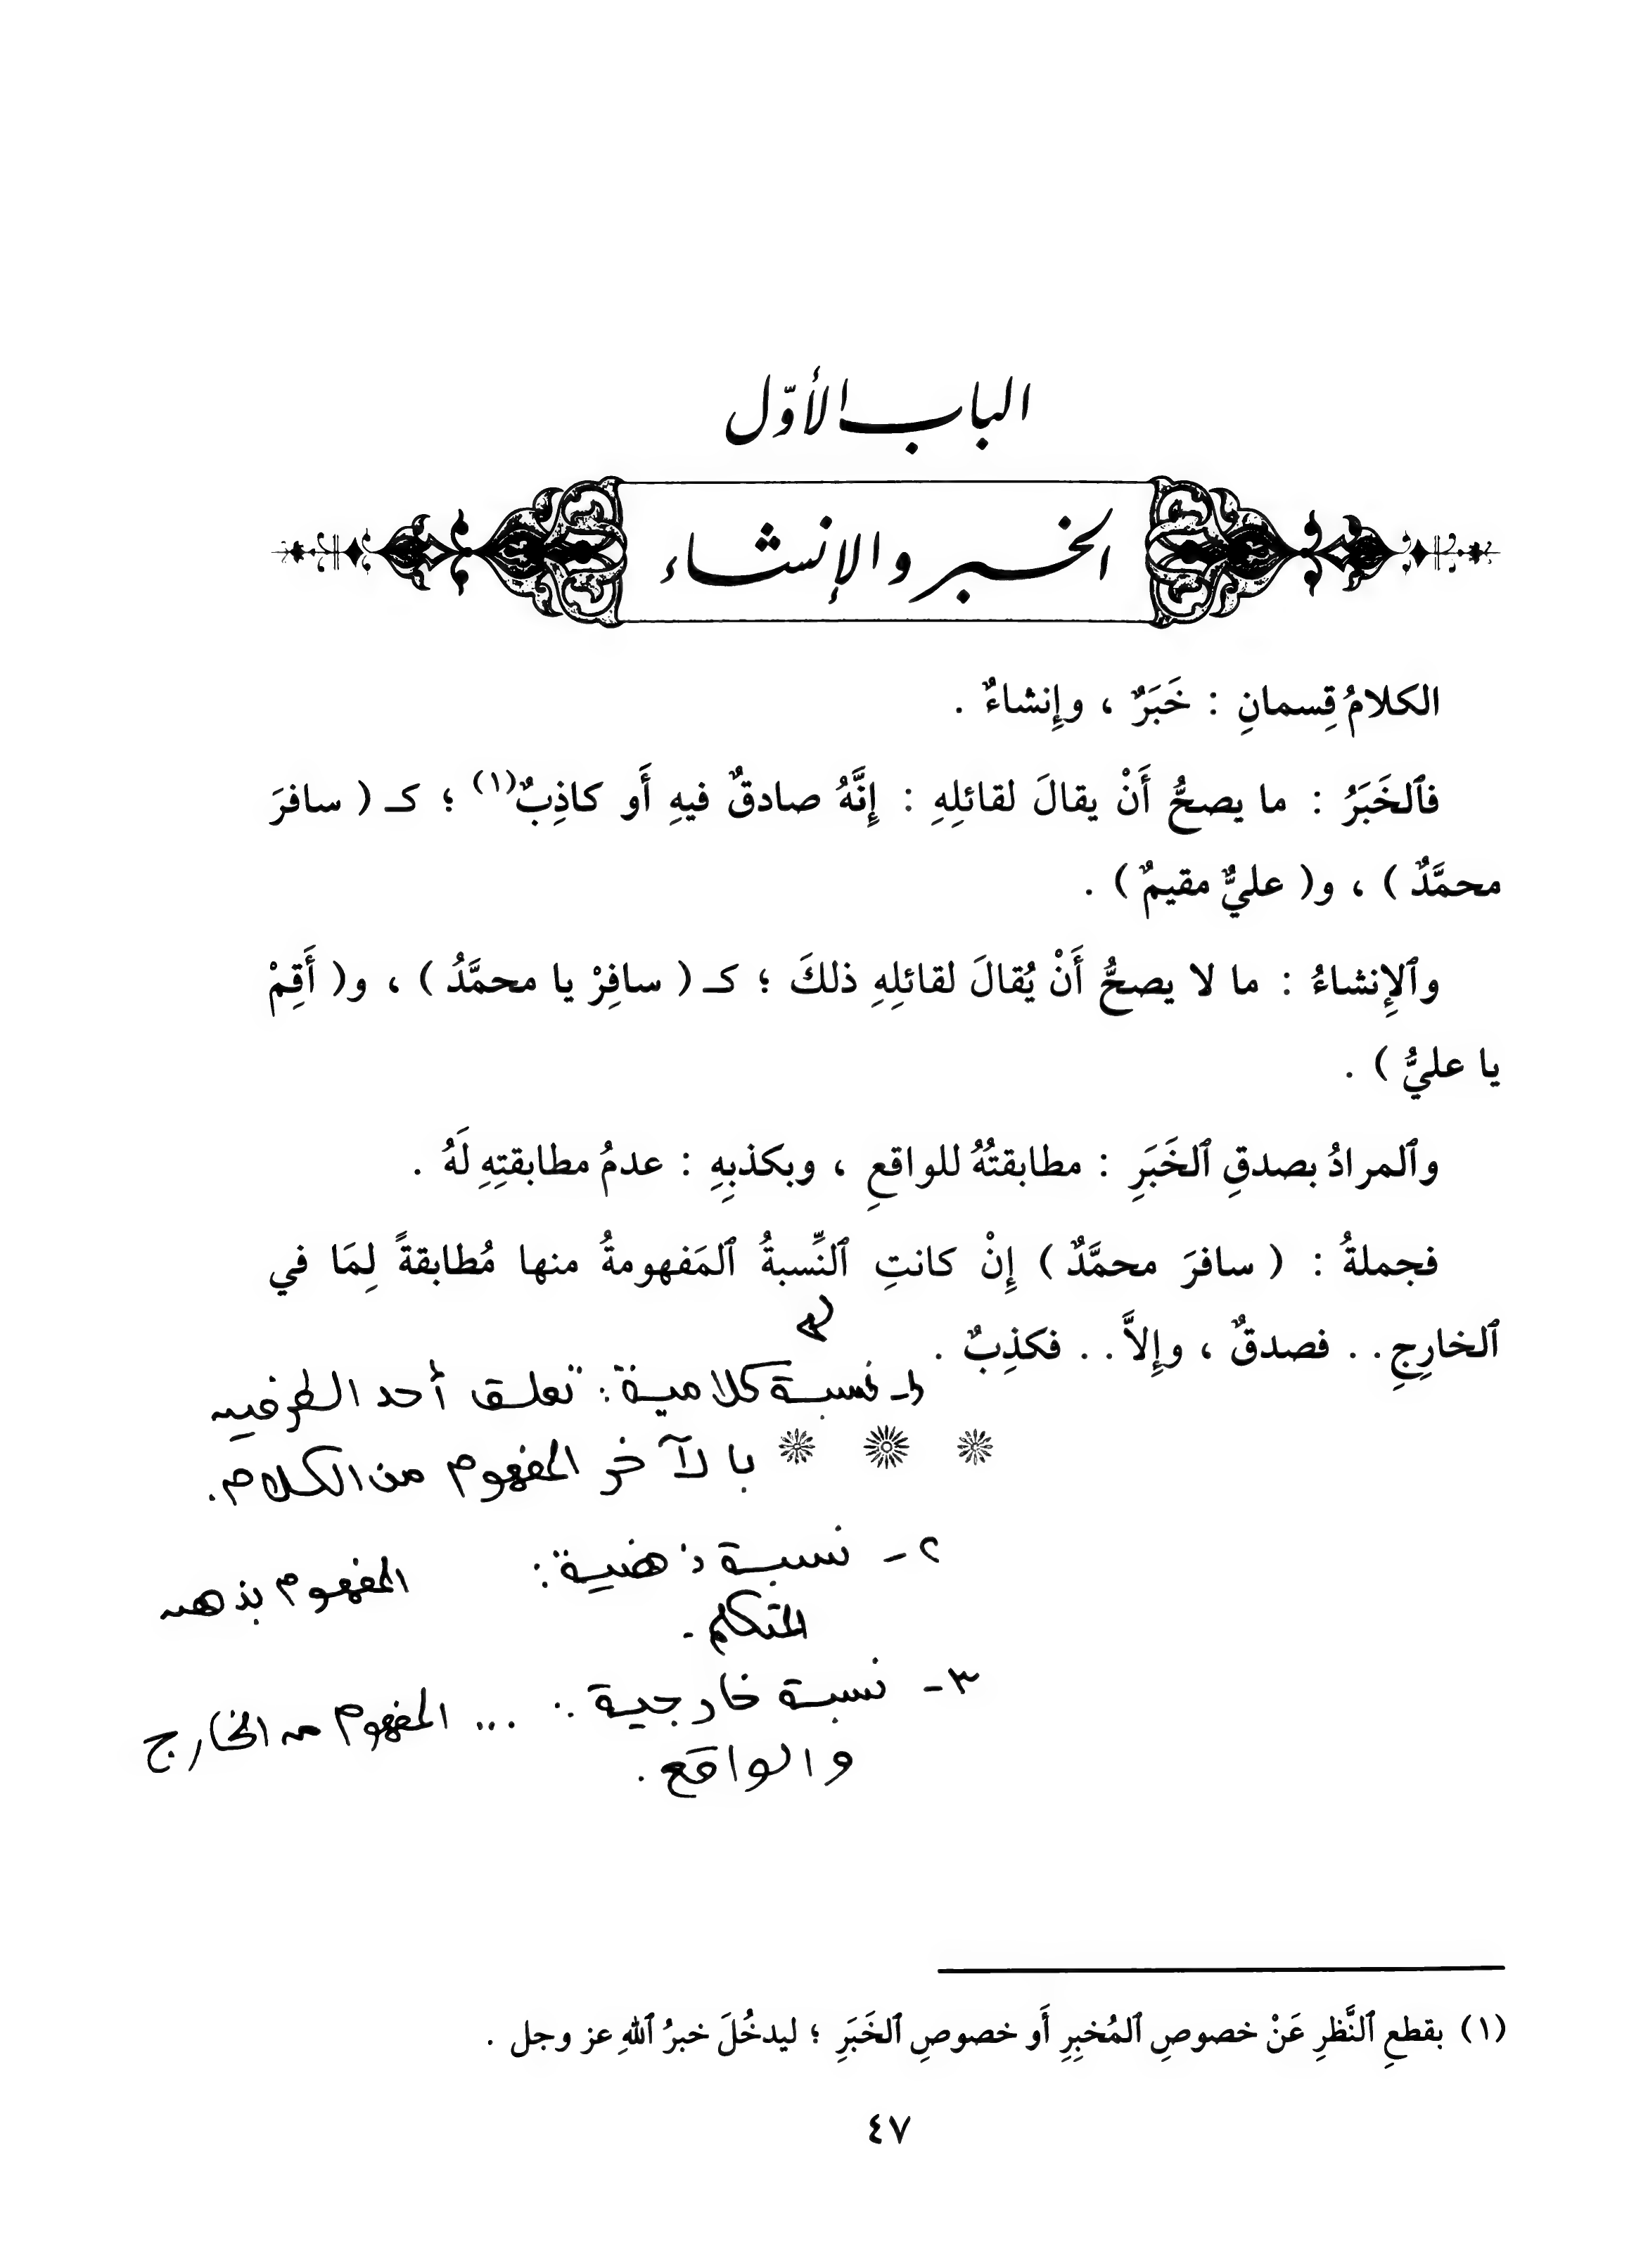 الباب الأوّل
الخبر والإنشاء
الكلامُ قِسمانِ : خَبَرٌ ، وإِنشاءٌ .
فٱلخَبَرُ : ما يصحُّ أَنْ يقالَ لقائلِهِ : إِنَّهُ صادقٌ فيهِ أَو كاذِبٌ(١) ؛ كـ ( سافرَ
محمَّدٌ ) ، و( عليٌّ مقيمٌ ) .
وٱلإِنشاءُ : ما لا يصحُّ أَنْ يُقالَ لقائلِهِ ذلكَ ؛ كـ ( سافِرْ يا محمَّدُ ) ، و( أَقِمْ
يا عليُّ ) .
وٱلمرادُ بصدقِ ٱلخَبَرِ : مطابقتُهُ للواقعِ ، وبكذبِهِ : عدمُ مطابقتِهِ لَهُ .
فجملةُ : ( سافرَ محمَّدٌ ) إِنْ كانتِ ٱلنِّسبةُ ٱلمَفهومةُ منها مُطابقةً لِمَا في
ٱلخارِجِ . . فصدقٌ ، وإِلاَّ . . فكذِبٌ .
١- نسبة كلامية : تعلق أحد الطرفين
بالآخر المفهوم من الكلام.
٢- نسبة ذهنية : المفهوم بذهن
المتكلم.
٣- نسبة خارجية : ... المفهوم من الخارج
والواقع.
(١) بقطعِ ٱلنَّظرِ عَنْ خصوصِ ٱلمُخبِرِ أَو خصوصِ ٱلخَبَرِ ؛ ليدخُلَ خبرُ ٱللهِ عز وجل .
٤٧